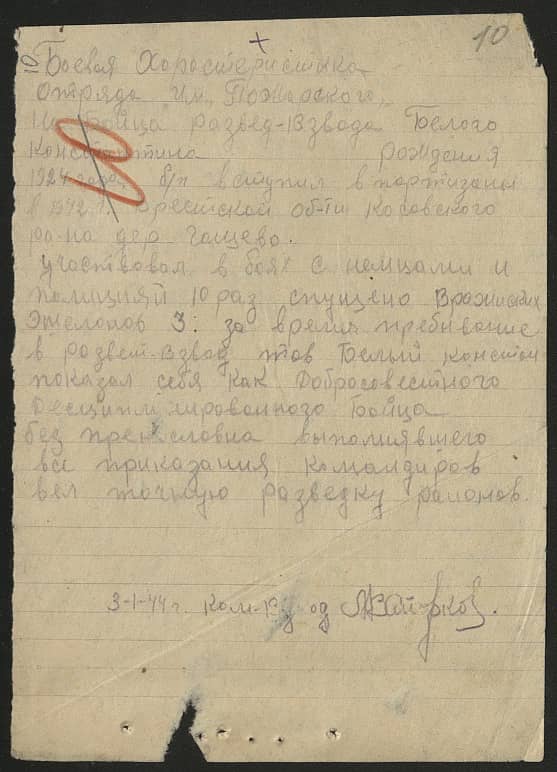 10
10
Боевая Характеристика
отряда им. Пожарского,,
На Бойца развед-взвода Белого
Константина рождения
1924 года б/п вступил в партизаны
в 1942 г. Брестской об-ти Косовского
ра-на дер Гощево.
участвовал в боях с немцами и
полицияй 10 раз спущено Вражиских
Эшелонов 3: за время пребывание
в развет-взвод тов Белый констан
показал себя как Добросовестного
Бойца
выполнявшего
все приказания командиров
вел точную разведку районов.
3-1-44 г.